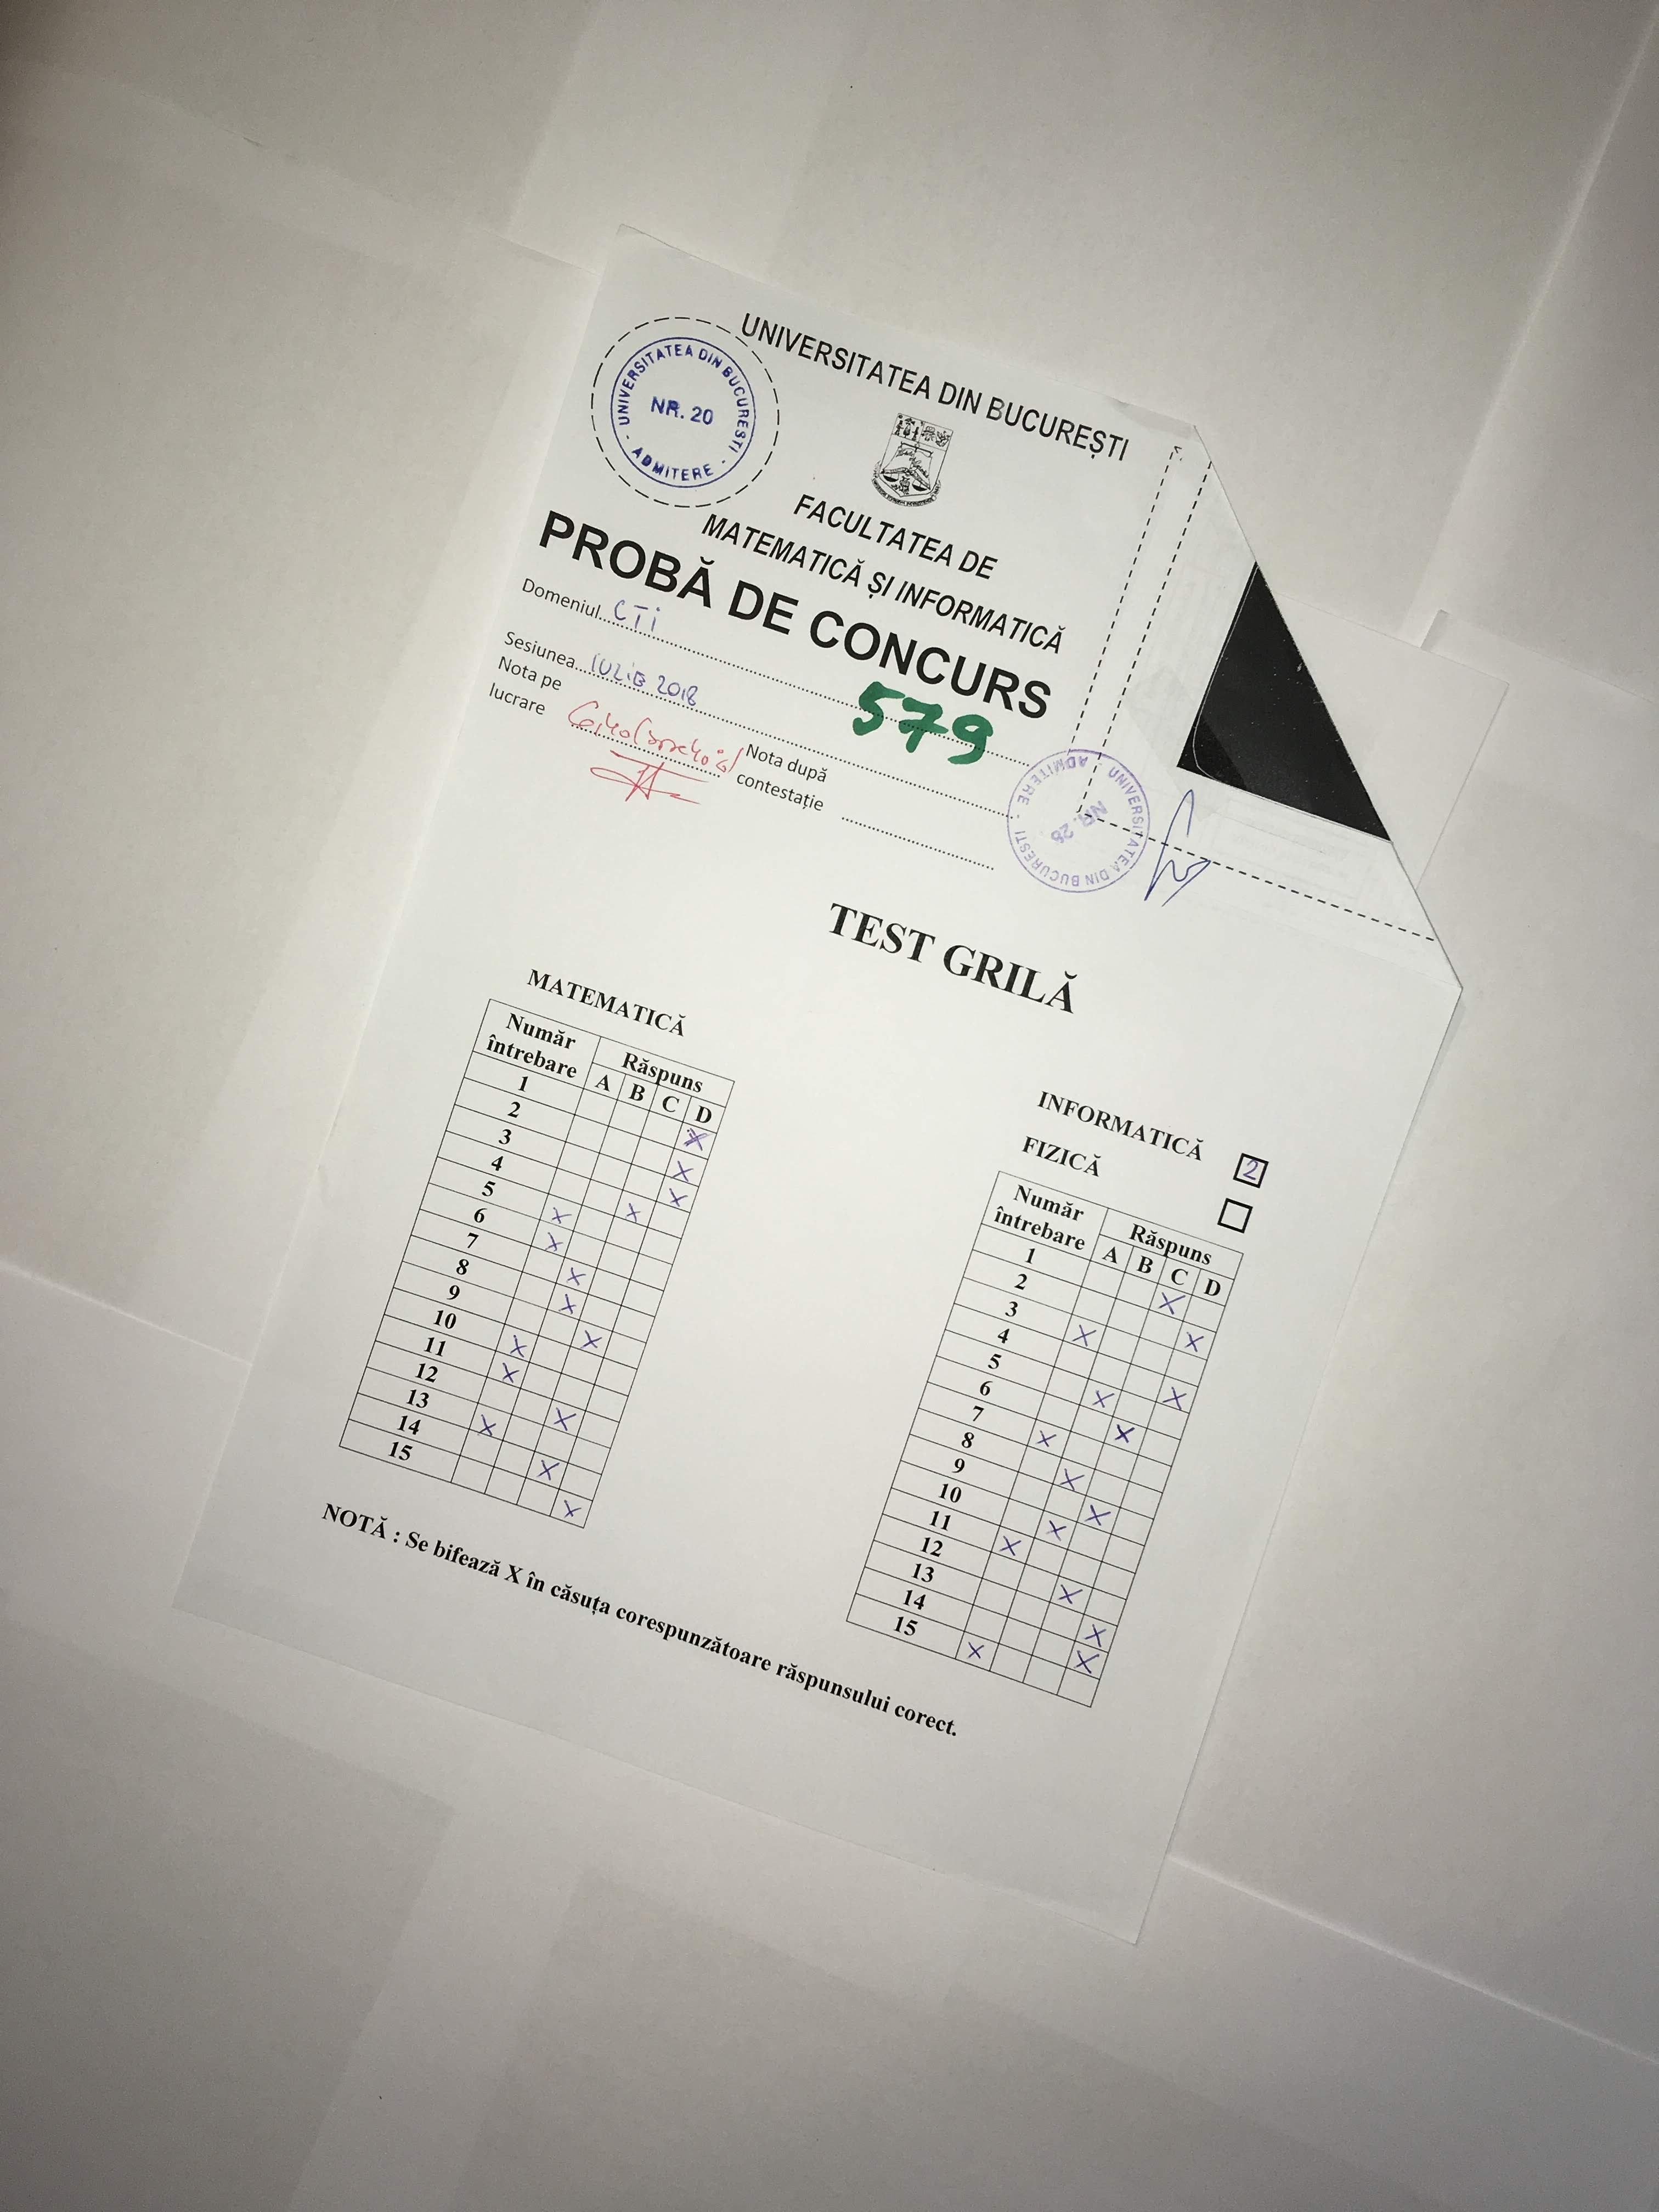 UNIVERSITATEA DIN BUCUREȘTI
UNIVERSITATEA DIN BUCURESTI
NR. 20
ADMITERE
FACULTATEA DE
MATEMATICĂ ȘI INFORMATICĂ
PROBĂ DE CONCURS
Domeniul CTI
Sesiunea IULIE 2018
579
Nota pe
lucrare
Nota după
contestație
UNIVERSITATEA DIN BUCURESTI
NR. 28
ADMITERE
TEST GRILĂ
MATEMATICĂ
Număr
întrebare
Răspuns
A B C D
1 X
2 X
3 X
4 X
5 X
6 X
7 X
8 X
9 X
10 X
11 X
12 X
13 X
14 X
15 X
INFORMATICĂ 2
FIZICĂ
Număr
întrebare
Răspuns
A B C D
1 X
2 X
3 X
4 X
5 X
6 X
7 X
8 X
9 X
10 X
11 X
12 X
13 X
14 X
15 X
NOTĂ : Se bifează X în căsuța corespunzătoare răspunsului corect.